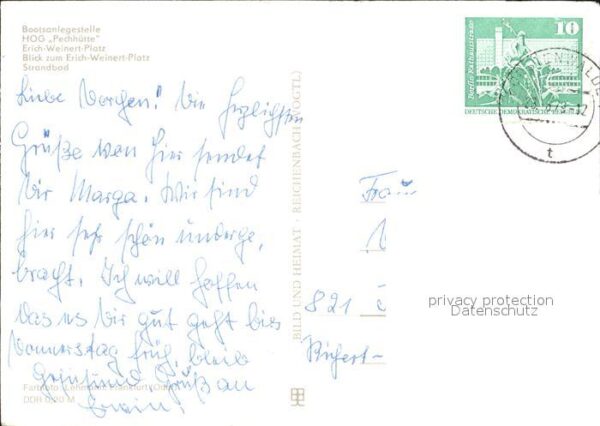 Bootsanlegestelle
HOG „Pechhütte"
Erich-Weinert-Platz
Blick zum Erich-Weinert-Platz
Strandbad
Liebe Die herzlichsten
Grüße von hier sendet
Dir Marga. Wir sind
hier sehr schön unterge,
bracht. Ich will hoffen
das es Dir gut geht bis
Donnerstag früh, bleib
gesund Gruß an
Erwin!
DDR 0,20 M
BILD UND HEIMAT · REICHENBACH (VOGTL)
10
Berlin, Rathausstraße
DEUTSCHE DEMOKRATISCHE REPUBLIK
t
Frau
821
privacy protection
Datenschutz